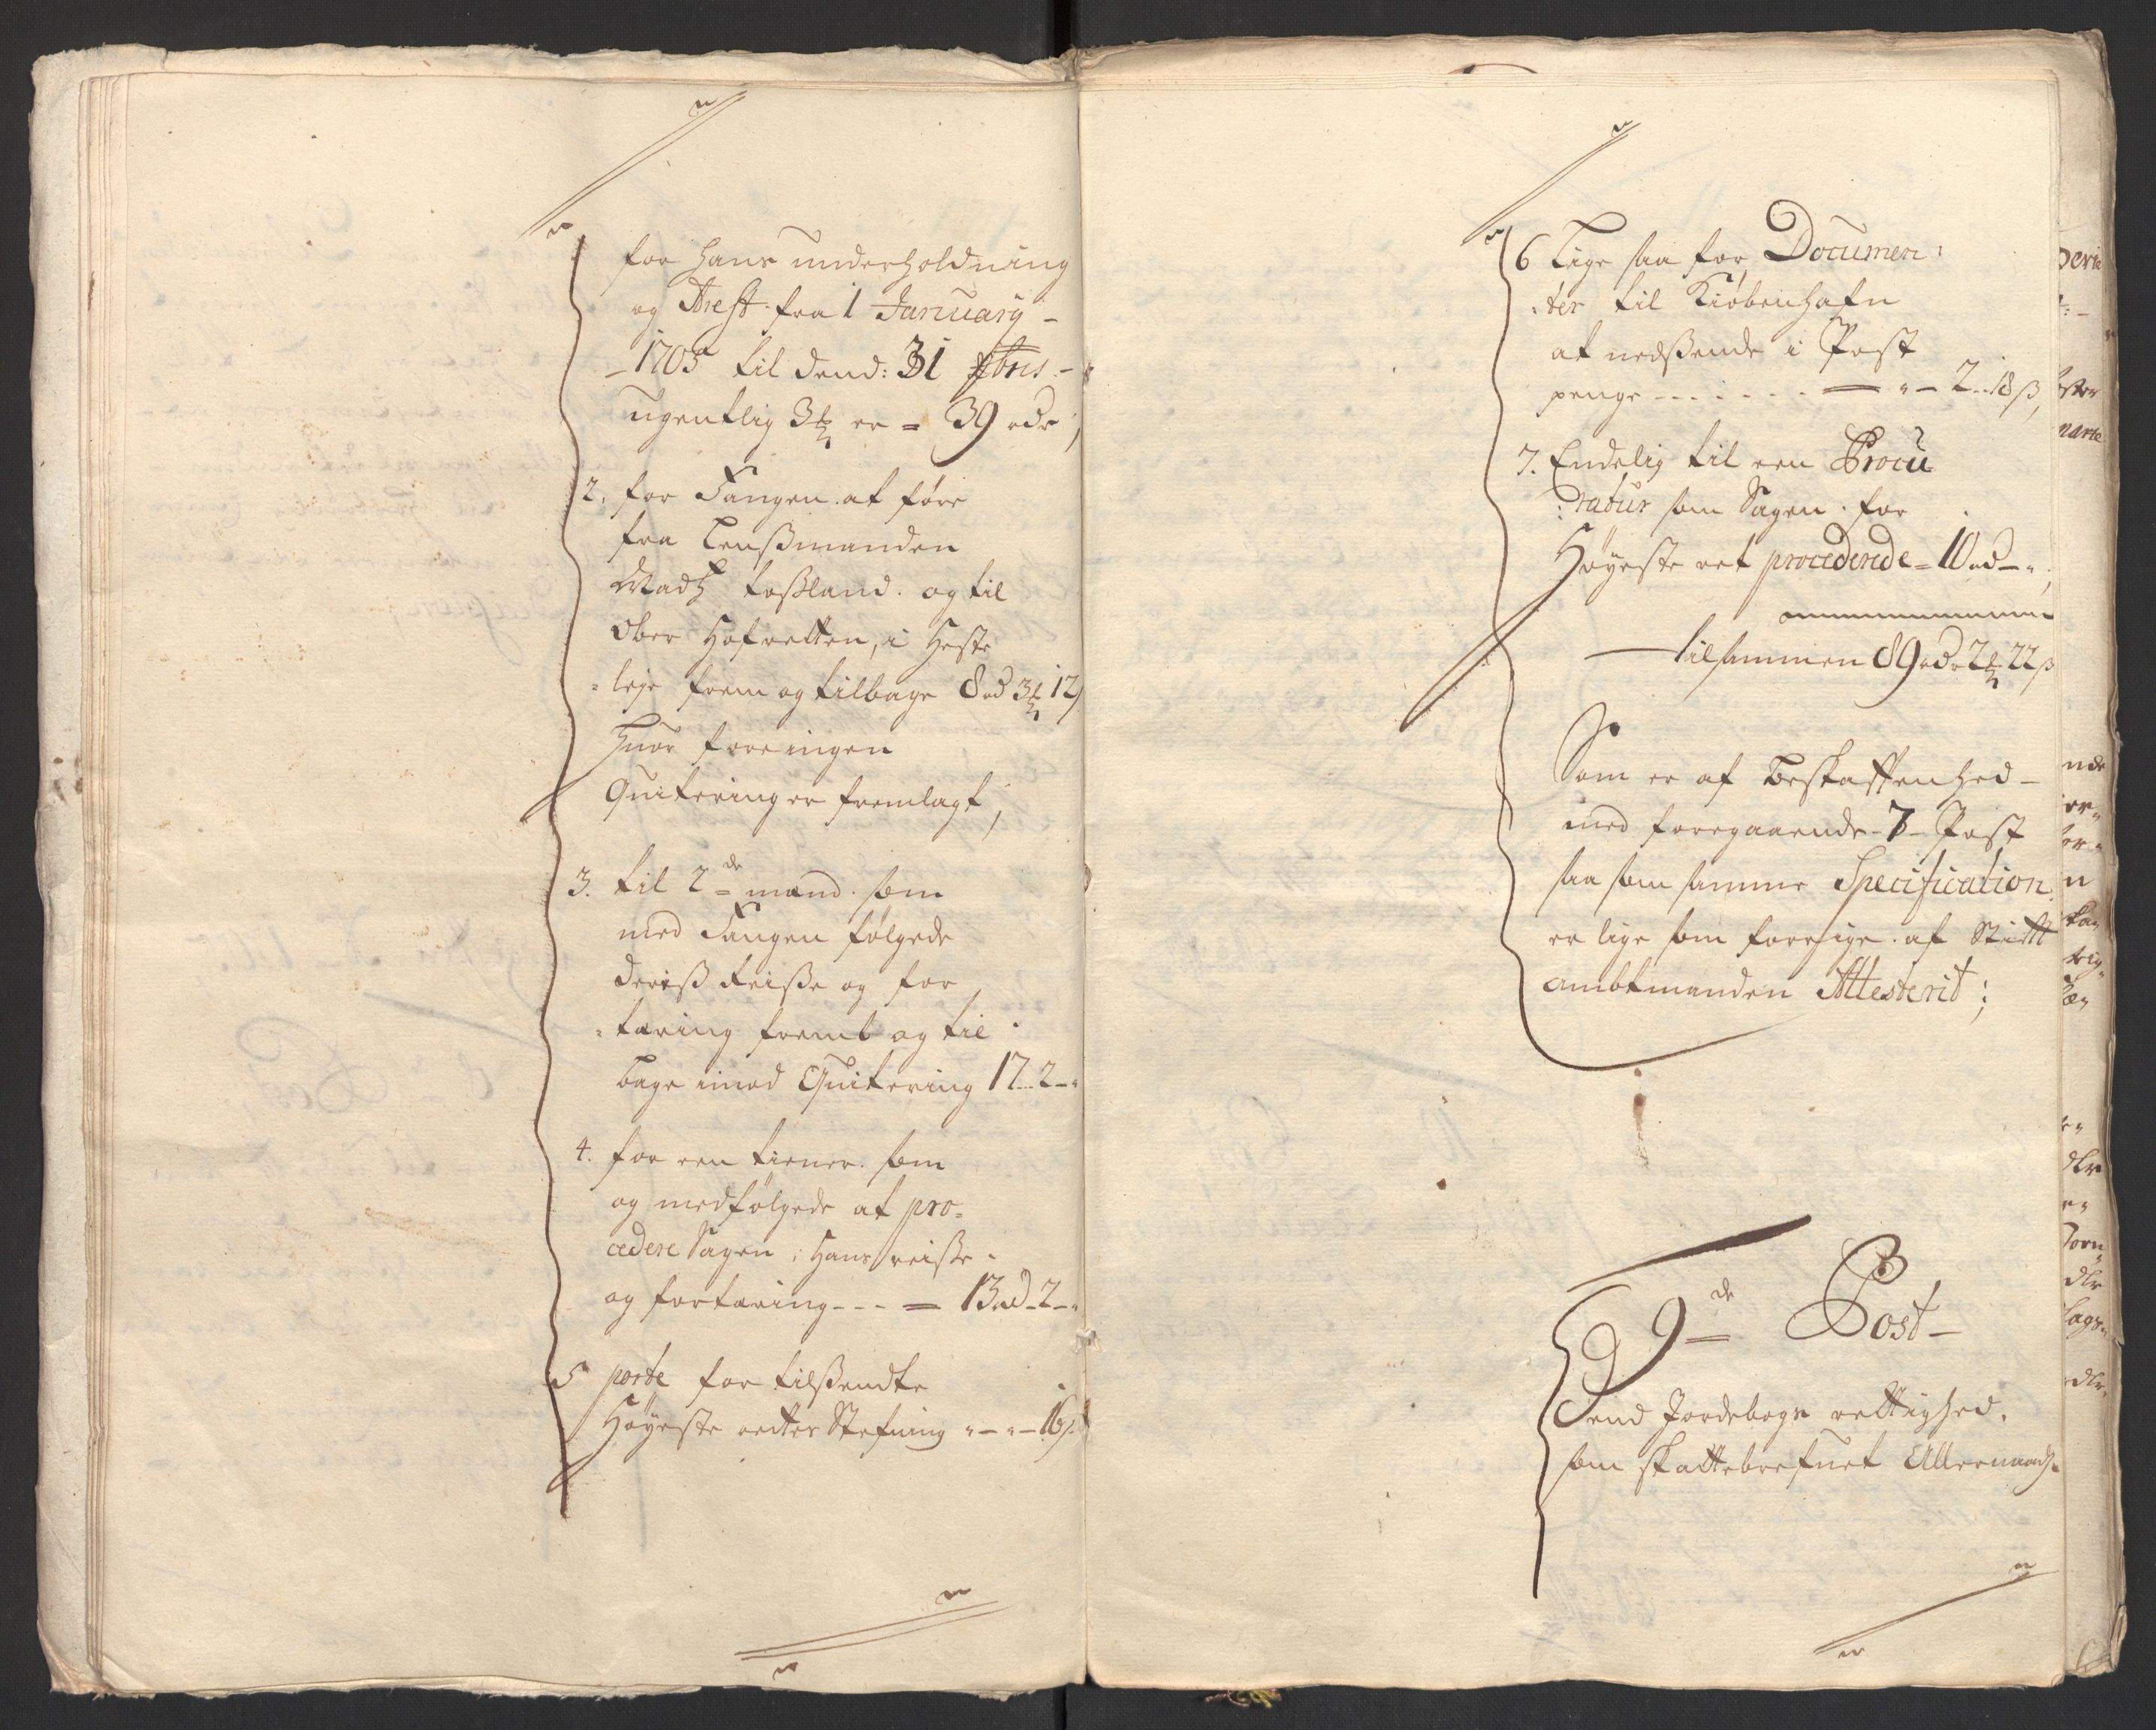 for hans underholdning
og Arest fra 1 January
1705 til dend: 31 xbris
ugentlig 3 ℔ er = 39 rdr
2. for Fangen at føre
fra Lensmanden
Madtz og til
Ober Hofretten, i Heste
leje frem og tilbage 8 rd 3 ℔ 12 ß
huor for ingen
Quitering er fremlagt,
3. til 2de mænd som
med Fangen følgede
deriß Reiße og for
tæring fremb og til
bage imod Quitering 17 - 2 -
4. for een tiener som
og medfølgede at pro=
cedere Sagen, hans reiße
og fortæring - - - = 13 rd - 2 -
5 porte for tilßendte
Høyeste retter Stefning " - " - 16 ß
6 Lige saa for Documen:
:ter til Kiøbenhafn
at nedßende i Post
penge - - - - - - " - 2 - 18 ß,
7. Endelig til een Procu
:ratur som Sagen for
Høyeste ret procederede = 10 rd - "
tilsammen 89 rdr 2 ℔ 22 ß
Som er af Beskaffenhed -
med foregaaende - 7 - Post
saa som samme Specification
er lige som forrige af Stifft
ambtmanden Attesterit;
9de Post -
Dend Jordebogs rettighed,
som skattebrefuet